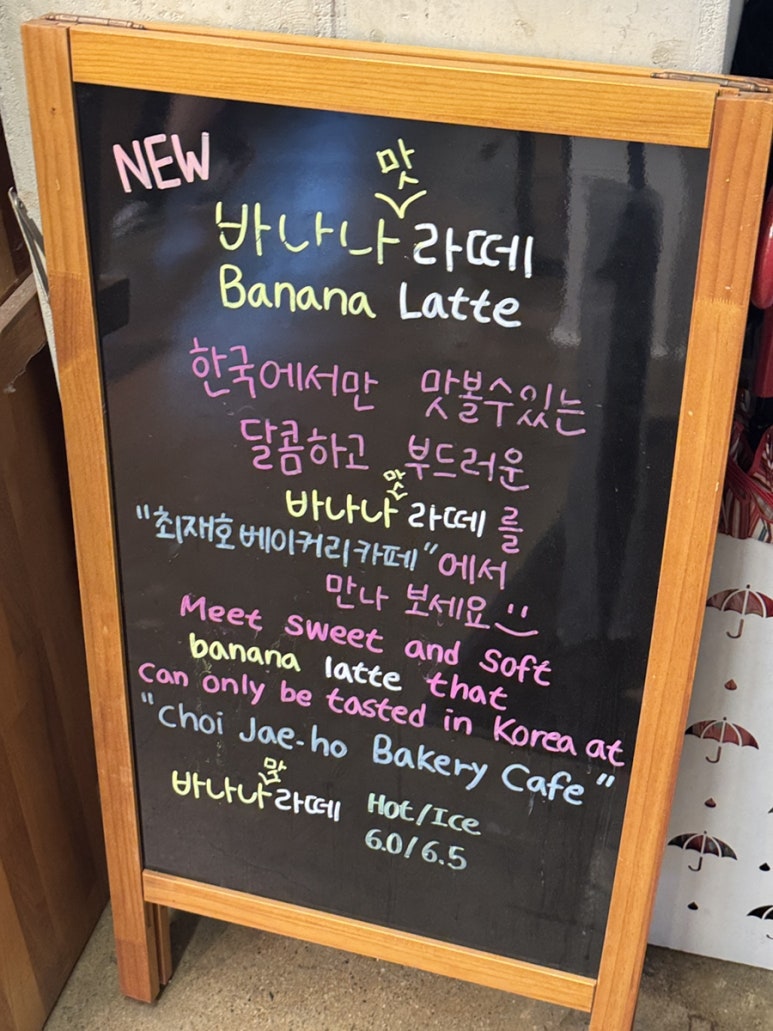 NEW
맛
바나나 라떼
Banana Latte
한국에서만 맛볼수있는
달콤하고 부드러운
맛
바나나 라떼를
"최재호베이커리카페"에서
만나 보세요
Meet sweet and soft
banana latte that
can only be tasted in Korea at
"Choi Jae-ho Bakery Cafe"
맛
바나나 라떼 Hot/Ice
6.0/6.5